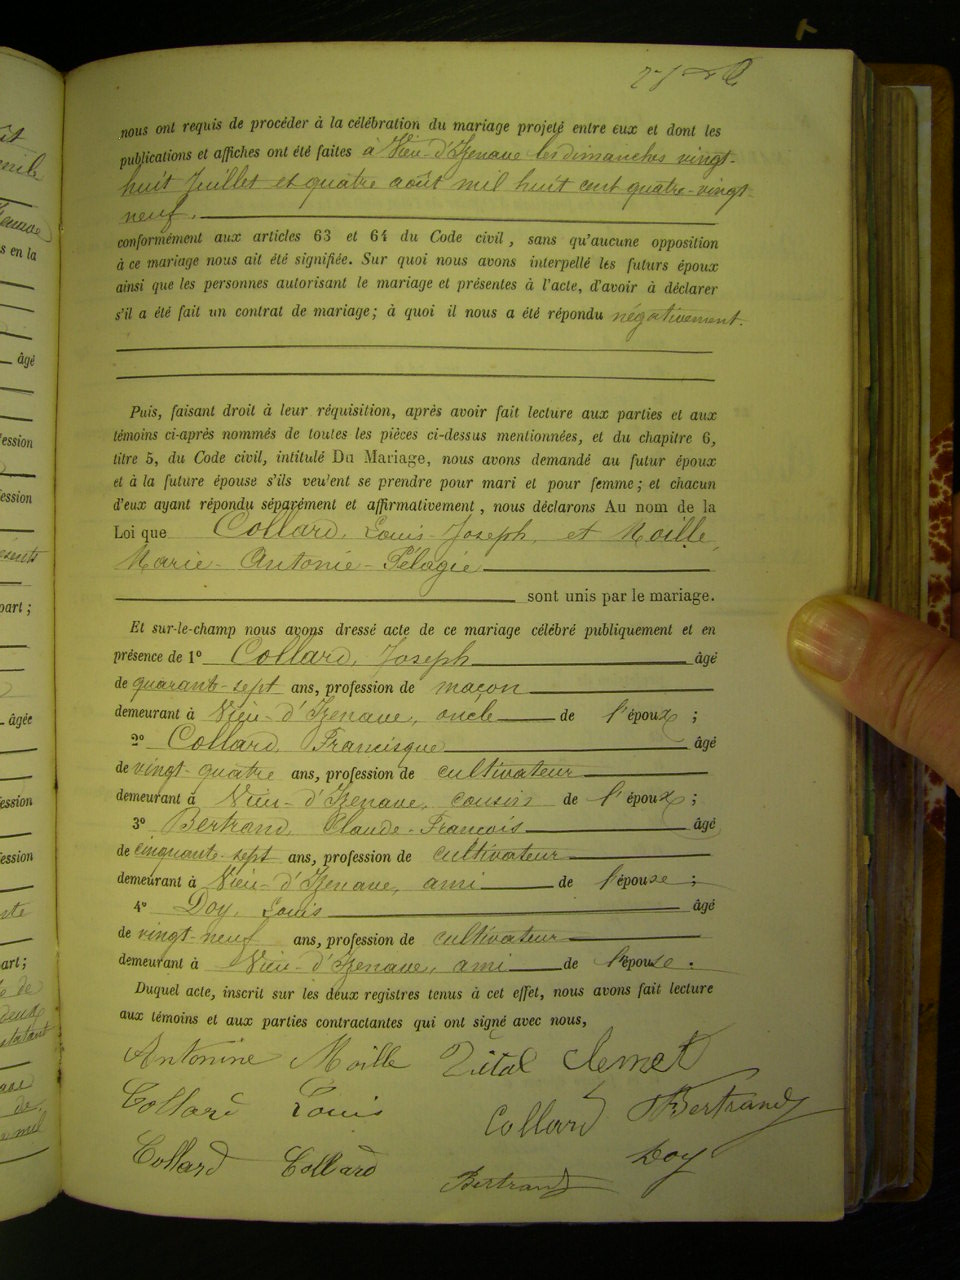 nous ont requis de procéder à la célébration du mariage projeté entre eux et dont les
publications et affiches ont été faites à Vieu-d'Izenave les dimanches vingt-
huit Juillet et quatre août mil huit cent quatre-vingt
neuf.
conformément aux articles 63 et 64 du Code civil, sans qu'aucune opposition
à ce mariage nous ait été signifiée. Sur quoi nous avons interpellé les futurs époux
ainsi que les personnes autorisant le mariage et présentes à l'acte, d'avoir à déclarer
s'il a été fait un contrat de mariage; à quoi il nous a été répondu négativement.
Puis, faisant droit à leur réquisition, après avoir fait lecture aux parties et aux
témoins ci-après nommés de toutes les pièces ci-dessus mentionnées, et du chapitre 6,
titre 5, du Code civil, intitulé Du Mariage, nous avons demandé au futur époux
et à la future épouse s'ils veulent se prendre pour mari et pour femme; et chacun
d'eux ayant répondu séparément et affirmativement, nous déclarons Au nom de la
Loi que Collard, Louis-Joseph, et Moille,
Marie-Antonie-Pélagie
sont unis par le mariage.
Et sur-le-champ nous avons dressé acte de ce mariage célébré publiquement et en
présence de 1° Collard, Joseph âgé
de quarante-sept ans, profession de maçon
demeurant à Vieu-d'Izenave, oncle de l'époux;
2° Collard, Francisque âgé
de vingt-quatre ans, profession de cultivateur
demeurant à Vieu-d'Izenave, cousin de l'époux;
3° Bertrand, Claude-François âgé
de cinquante-sept ans, profession de cultivateur
demeurant à Vieu-d'Izenave, ami de l'épouse;
4° Doy, Louis âgé
de vingt-neuf ans, profession de cultivateur
demeurant à Vieu-d'Izenave, ami de l'épouse.
Duquel acte, inscrit sur les deux registres tenus à cet effet, nous avons fait lecture
aux témoins et aux parties contractantes qui ont signé avec nous,
Antonine Moille Vital Clemet
Collard Louis Collard Bertrand
Collard Collard Bertrand Doy